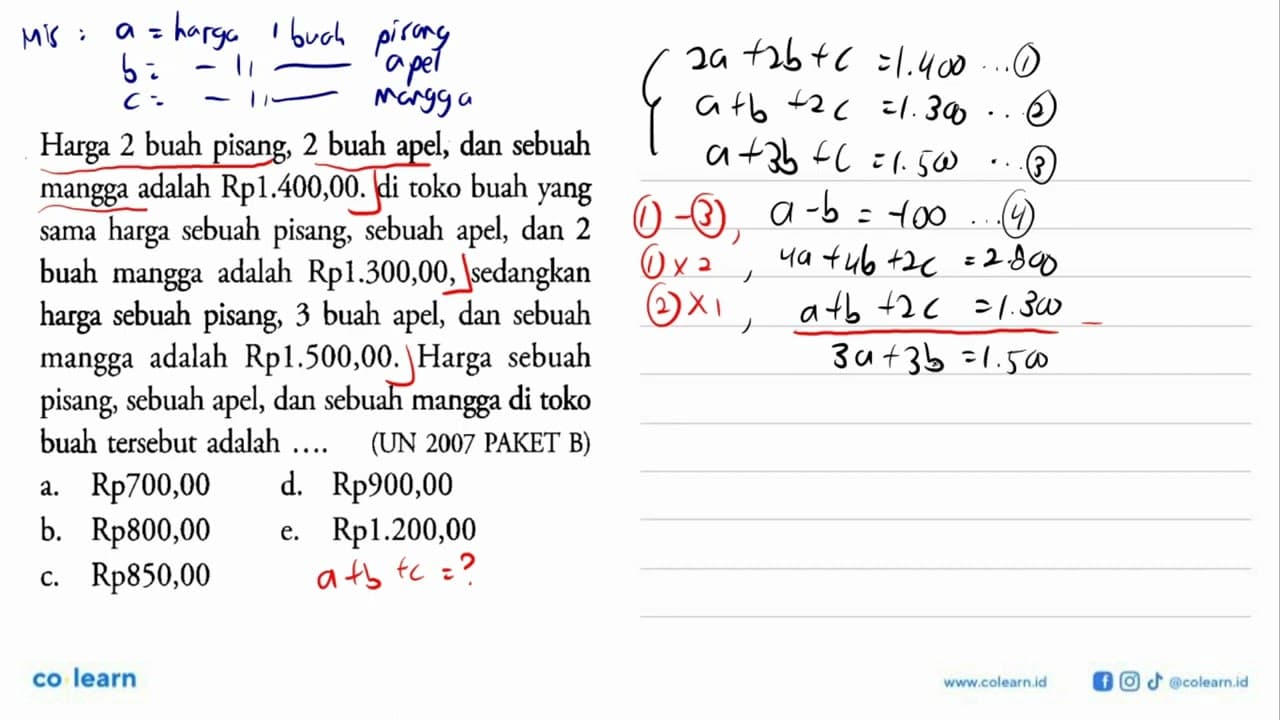 Mis : a = harga 1 buah pisang
b = - 11 — apel
c = - 11 — mangga
Harga 2 buah pisang, 2 buah apel, dan sebuah
mangga adalah Rp1.400,00. di toko buah yang
sama harga sebuah pisang, sebuah apel, dan 2
buah mangga adalah Rp1.300,00, sedangkan
harga sebuah pisang, 3 buah apel, dan sebuah
mangga adalah Rp1.500,00. Harga sebuah
pisang, sebuah apel, dan sebuah mangga di toko
buah tersebut adalah .... (UN 2007 PAKET B)
a. Rp700,00 d. Rp900,00
b. Rp800,00 e. Rp1.200,00
c. Rp850,00 a+b+c = ?
2a+2b+c = 1.400 ... ①
a+b+2c = 1.300 ... ②
a+3b+c = 1.500 ... ③
① - ③, a-b = -100 ... ④
① × 2, 4a+4b+2c = 2.800
② × 1, a+b+2c = 1.300 -
3a+3b = 1.500
co learn
www.colearn.id @colearn.id